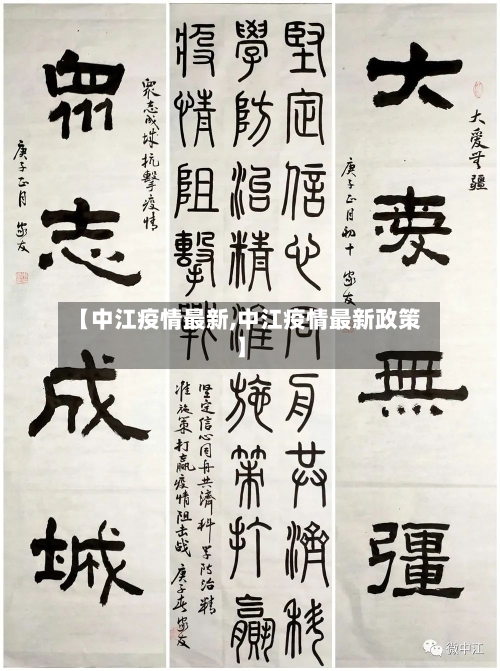 大愛無疆
大爱無疆
庚子正月初十 家友
堅定信心同舟共濟科
學防治精准施策打贏
疫情阻擊戰
坚定信心同舟共濟科学防治精
准施策打赢疫情阻击战 庚子春 家友
眾志成城
眾志成城抗擊疫情
庚子正月 家友
【中江疫情最新,中江疫情最新政策
】
微中江